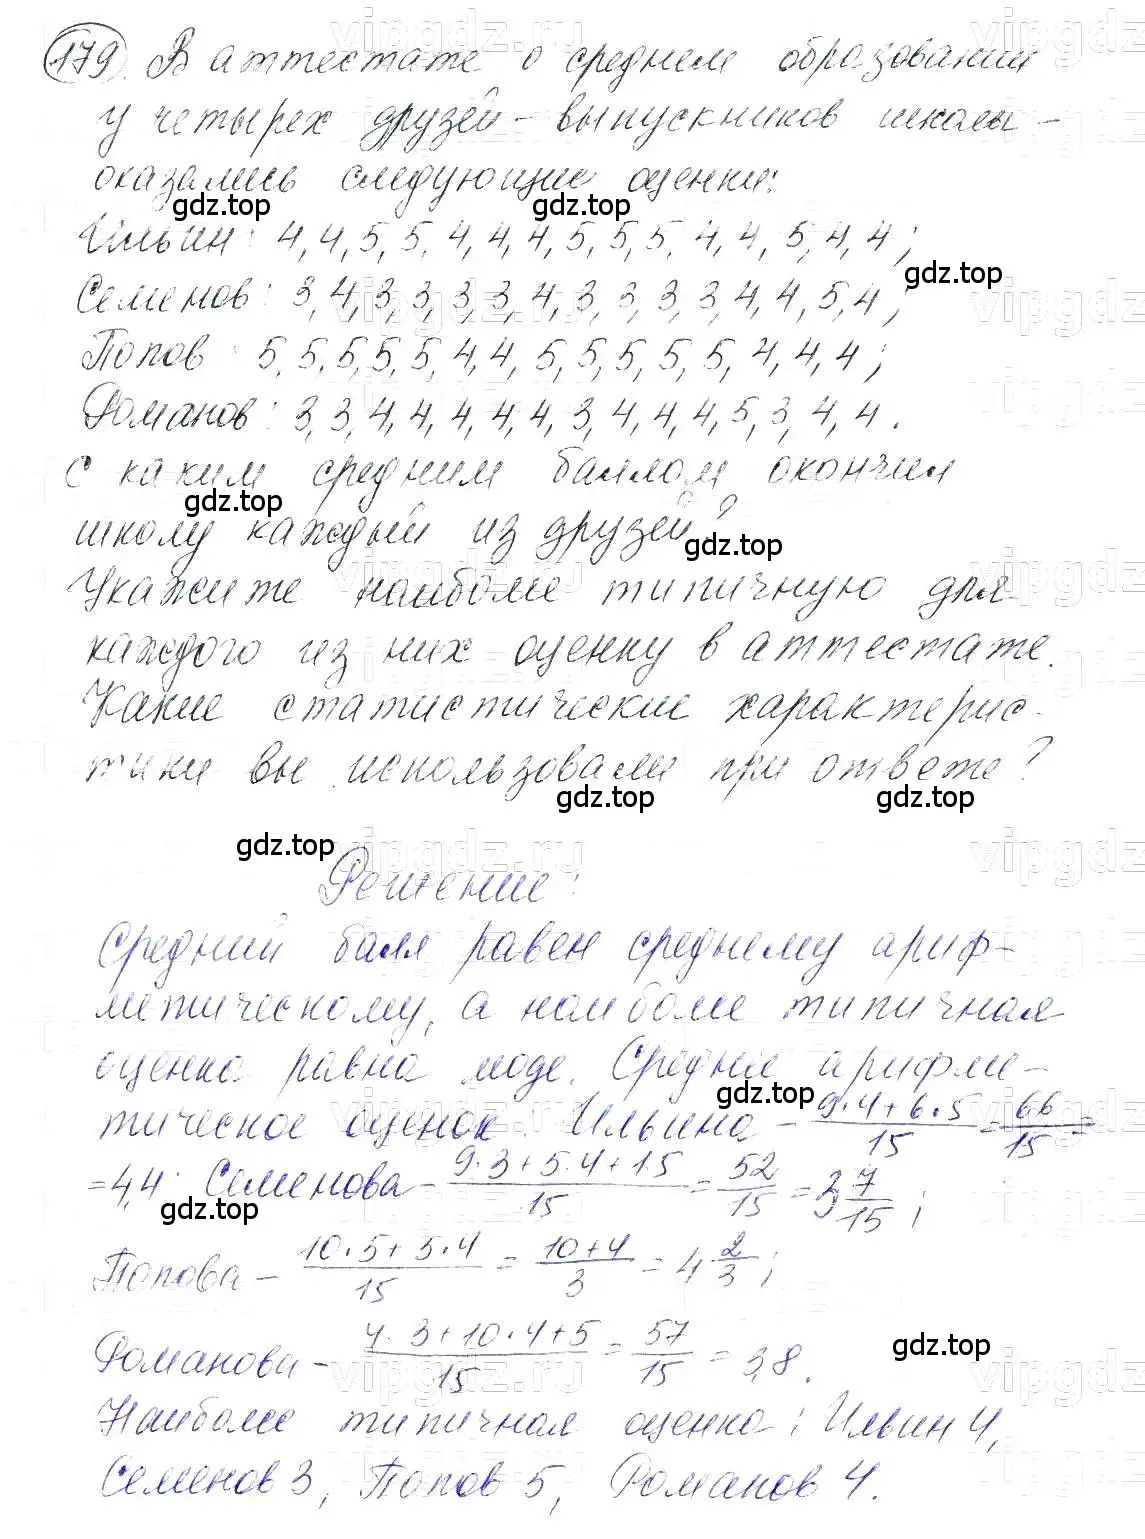 179. В аттестате о среднем образовании
у четырех друзей - выпускников школы -
оказались следующие оценки:
Ильин: 4,4,5,5,4,4,4,5,5,5,4,4,5,4,4;
Семенов: 3,4,3,3,3,3,4,3,3,3,3,4,4,5,4;
Попов: 5,5,5,5,5,4,4,5,5,5,5,5,4,4,4;
Романов: 3,3,4,4,4,4,4,3,4,4,4,5,3,4,4.
С каким средним баллом окончил
школу каждый из друзей?
Укажите наиболее типичную для
каждого из них оценку в аттестате.
Какие статистические характерис-
тики вы использовали при ответе?
Решение:
Средний балл равен среднему ариф-
метическому, а наиболее типичная
оценка равна моде. Среднее арифме-
тическое оценок Ильина - 9·4+6·5/15 = 66/15 =
=4,4; Семенова - 9·3+5·4+1·5/15 = 52/15 = 3 7/15;
Попова - 10·5+5·4/15 = 10+4/3 = 4 2/3;
Романова - 4·3+10·4+5/15 = 57/15 = 3,8.
Наиболее типичная оценка: Ильин 4,
Семенов 3, Попов 5, Романов 4.
gdz.top
gdz.top
gdz.top
gdz.top
gdz.top
gdz.top
gdz.top
gdz.top
gdz.top
gdz.top
gdz.top